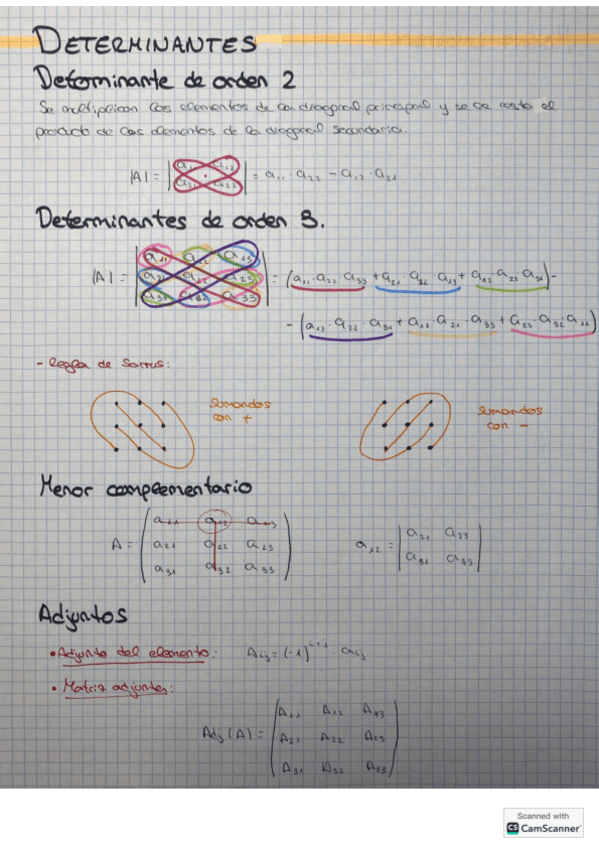 DETERMINANTES
Determinante de orden 2
Se multiplican los elementos de la diagonal principal y se le resta el
producto de los elementos de la diagonal secundaria.
|A| = | a₁₁ a₁₂ | = a₁₁ · a₂₂ - a₁₂ · a₂₁
| a₂₁ a₂₂ |
Determinantes de orden 3.
| a₁₁ a₁₂ a₁₃ |
|A| = | a₂₁ a₂₂ a₂₃ | = (a₁₁ · a₂₂ · a₃₃ + a₂₁ · a₃₂ · a₁₃ + a₁₂ · a₂₃ · a₃₁) -
| a₃₁ a₃₂ a₃₃ |
- (a₁₃ · a₂₂ · a₃₁ + a₁₂ · a₂₁ · a₃₃ + a₂₃ · a₃₂ · a₁₁)
- Regla de Sarrus:
Sumandos con +
Sumandos con -
Menor complementario
( a₁₁ a₁₂ a₁₃ )
A = ( a₂₁ a₂₂ a₂₃ )
( a₃₁ a₃₂ a₃₃ )
a₁₂ = | a₂₁ a₂₃ |
| a₃₁ a₃₃ |
Adjuntos
• Adjunto del elemento: Aᵢⱼ = (-1)ⁱ⁺ʲ · aᵢⱼ
• Matriz adjuntos:
( A₁₁ A₁₂ A₁₃ )
Adj (A) = ( A₂₁ A₂₂ A₂₃ )
( A₃₁ A₃₂ A₃₃ )
Scanned with
CS CamScanner